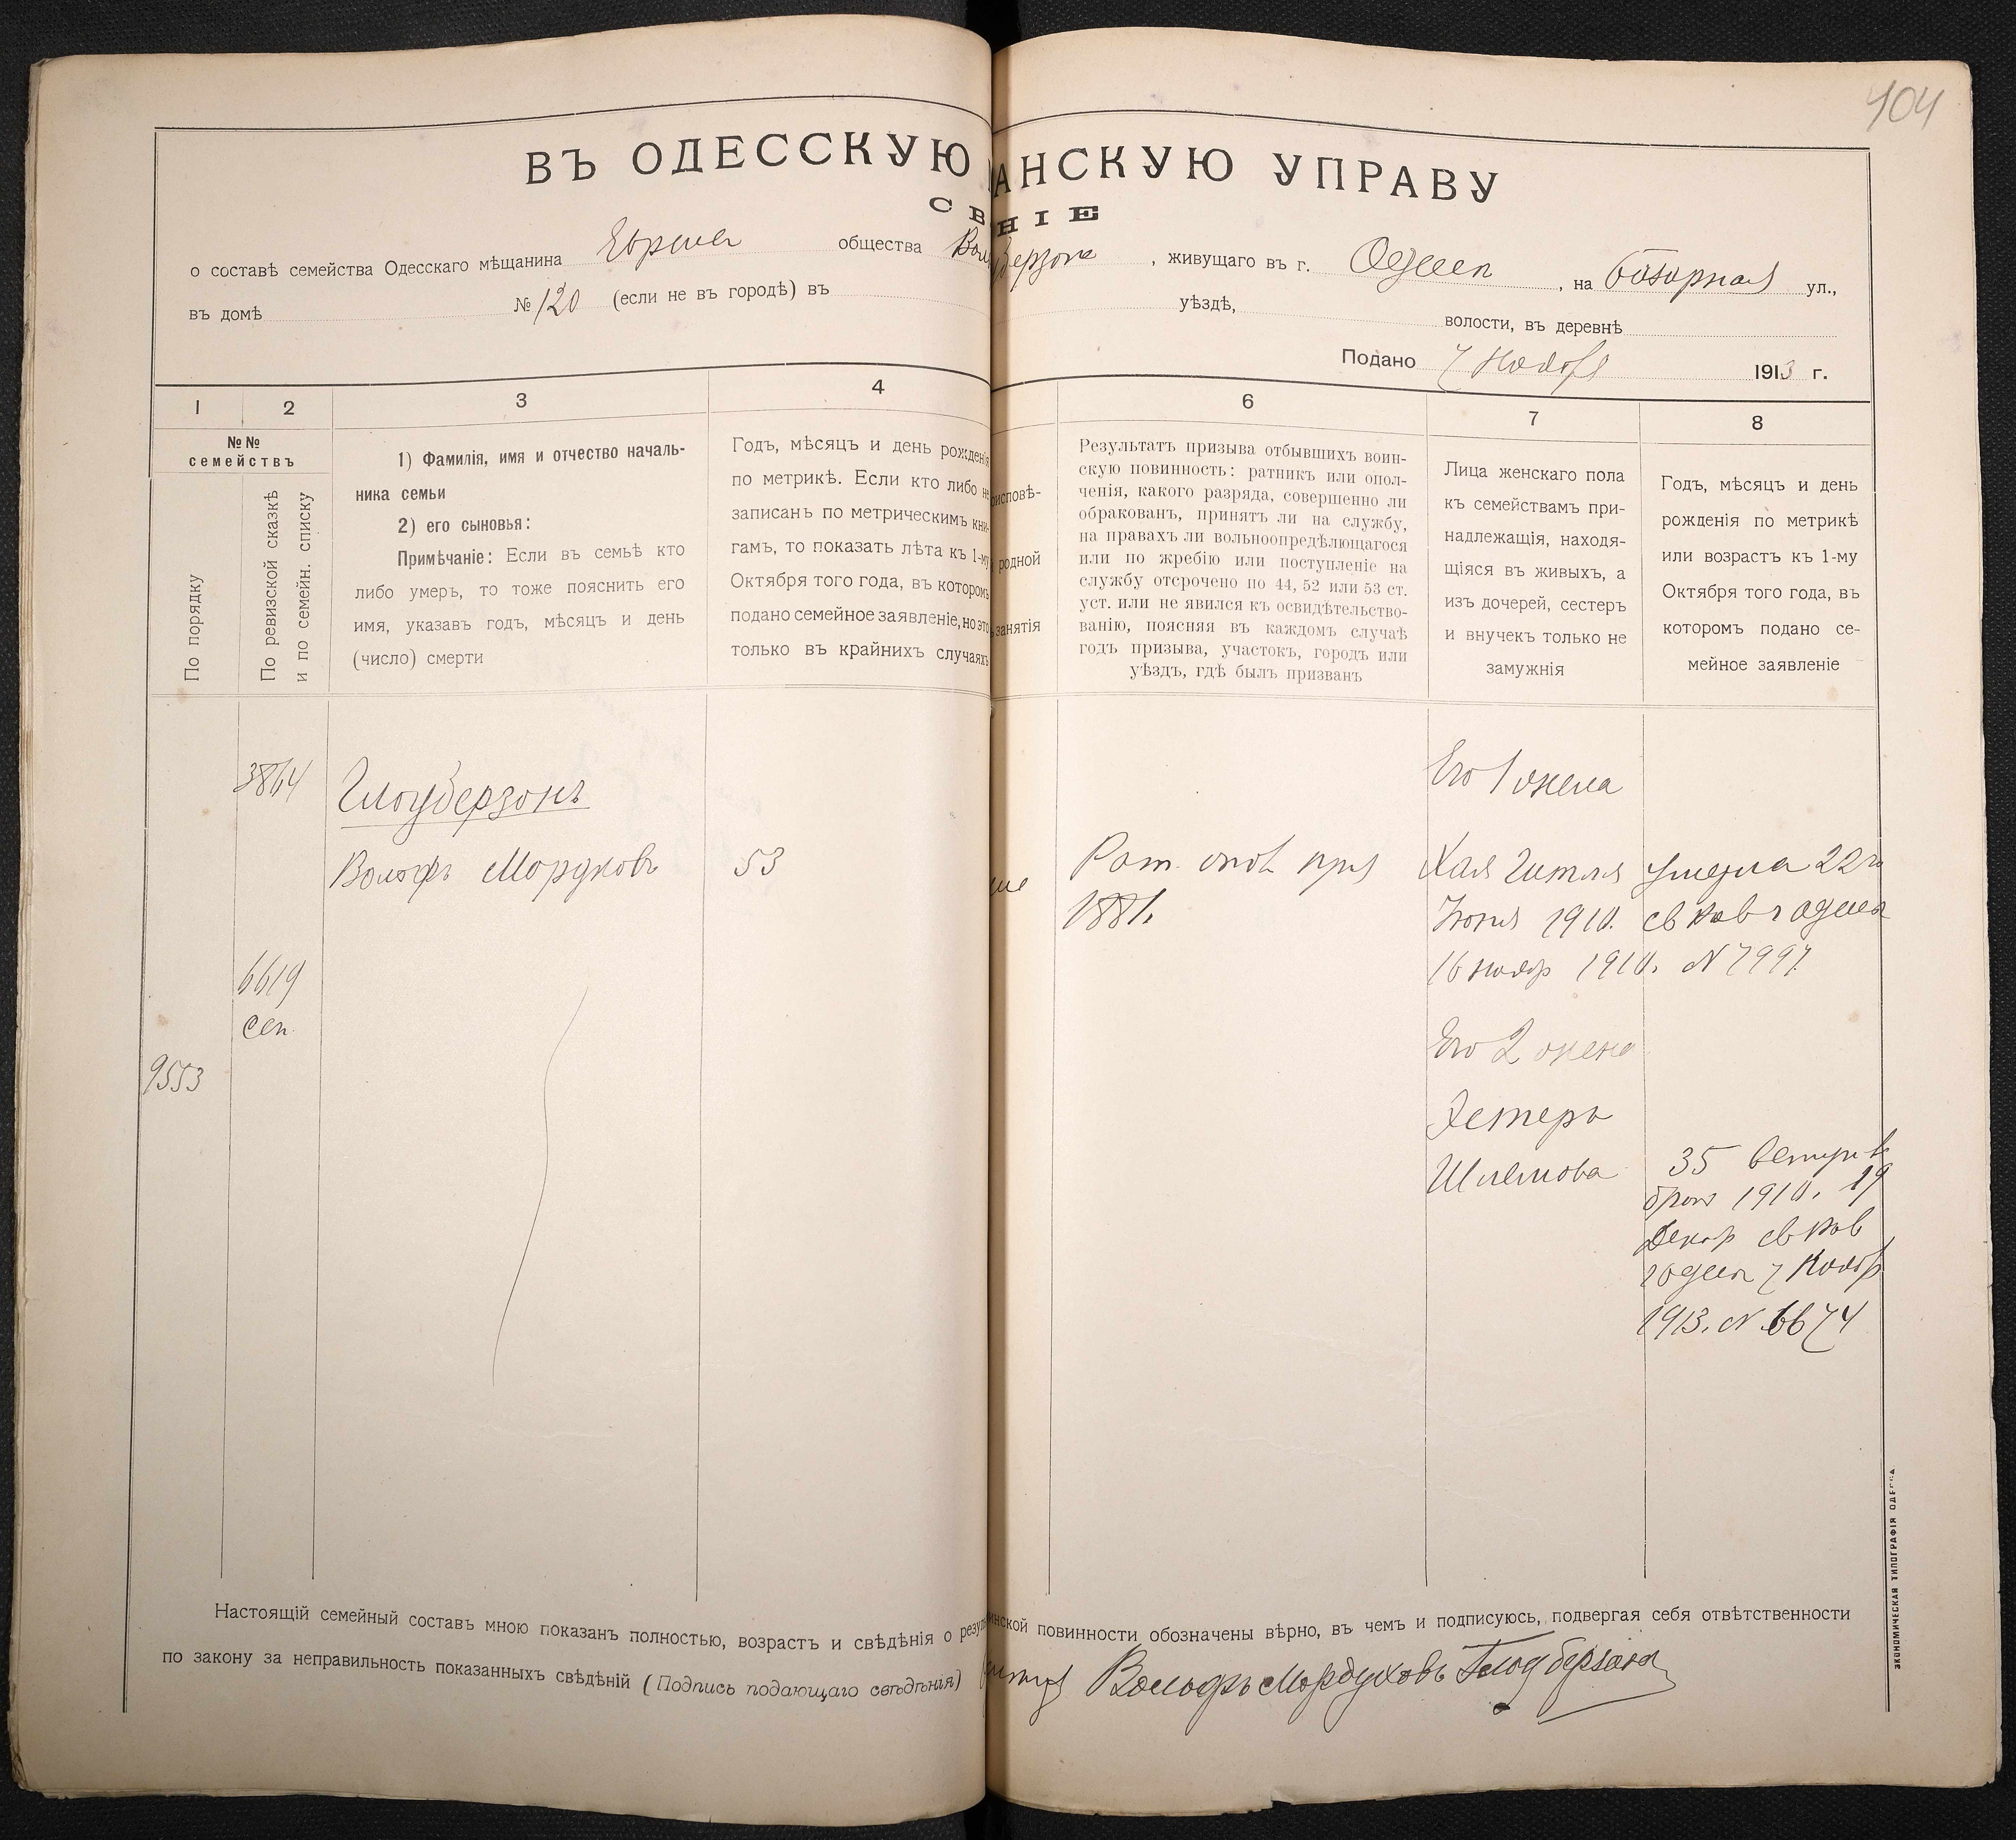 404
ВЪ ОДЕССКУЮ АНСКУЮ УПРАВУ
СВ НІЕ
о составѣ семейства Одесскаго мѣщанина Евреи общества Вол берзонъ , живущаго въ г. Одессѣ , на Базарная ул.,
въ домѣ № 120 (если не въ городѣ) въ уѣздѣ, волости, въ деревнѣ
Подано 7 Ноября 1913 г.
1 2 3 4 6 7 8
№№
семействъ
По порядку
По ревизской сказкѣ
и по семейн. списку
1) Фамилія, имя и отчество началь-
ника семьи
2) его сыновья:
Примѣчаніе: Если въ семьѣ кто
либо умеръ, то тоже пояснить его
имя, указавъ годъ, мѣсяцъ и день
(число) смерти
Годъ, мѣсяцъ и день рожденія
по метрикѣ. Если кто либо не
записанъ по метрическимъ кни-
гамъ, то показать лѣта къ 1-му
Октября того года, въ которомъ
подано семейное заявленіе, но это
только въ крайнихъ случаяхъ
исповѣ-
родной
занятія
Результатъ призыва отбывшихъ воин-
скую повинность: ратникъ или опол-
ченія, какого разряда, совершенно ли
обракованъ, принятъ ли на службу,
на правахъ ли вольноопредѣляющагося
или по жребію или поступленіе на
службу отсрочено по 44, 52 или 53 ст.
уст. или не явился къ освидѣтельство-
ванію, поясняя въ каждомъ случаѣ
годъ призыва, участокъ, городъ или
уѣздъ, гдѣ былъ призванъ
Лица женскаго пола
къ семействамъ при-
надлежащія, находя-
щіяся въ живыхъ, а
изъ дочерей, сестеръ
и внучекъ только не
замужнія
Годъ, мѣсяцъ и день
рожденія по метрикѣ
или возрастъ къ 1-му
Октября того года, въ
которомъ подано се-
мейное заявленіе
3864
Глоуберзонъ
Вольфъ Мордковъ
53
6619
сем.
9553
Рат. опол. приз
1881.
Его 1 жена
Хая Гитля умерла 22го
Іюня 1910. св рав г Одессы
16 нояб 1910. № 7997
Его 2 жена
Эстеръ
Шлемова
35 вступ въ
бракъ 1910. 19
Декаб св рав
г Одессы 7 Нояб
1913. № 6674
Настоящій семейный составъ мною показанъ полностью, возрастъ и свѣдѣнія о резуль инской повинности обозначены вѣрно, въ чемъ и подписуюсь, подвергая себя отвѣтственности
по закону за неправильность показанныхъ свѣдѣній (Подпись подающаго свѣдѣнія) Вольфъ Мордуховъ Глодберзонъ
ЭКОНОМИЧЕСКАЯ ТИПОГРАФІЯ ОДЕССА.